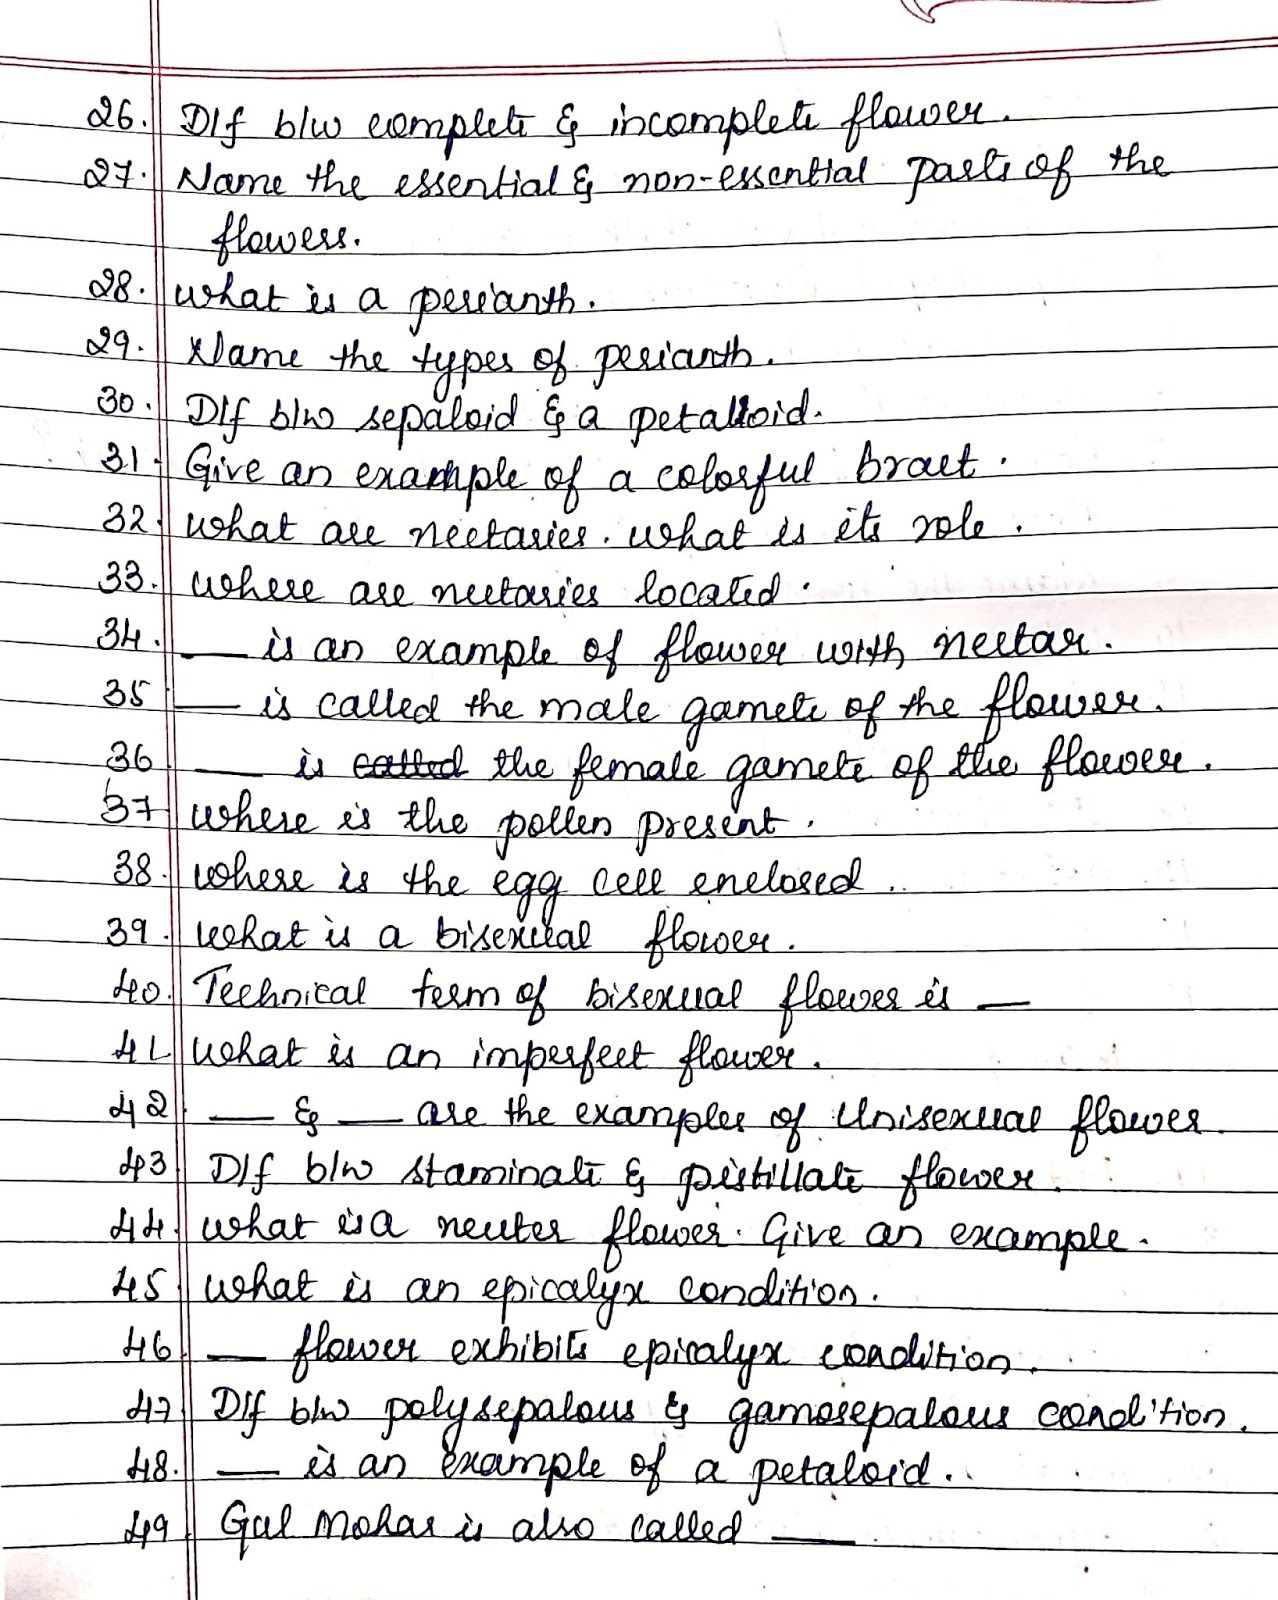 26. D/f b/w complete & incomplete flower.
27. Name the essential & non-essential parts of the
flowers.
28. what is a perianth.
29. Name the types of perianth.
30. D/f b/w sepaloid & a petalloid.
31. Give an example of a colorful bract.
32. what are nectaries. what is its role.
33. where are nectaries located.
34. __ is an example of flower with nectar.
35 __ is called the male gamete of the flower.
36 __ is called the female gamete of the flower.
37 where is the pollen present.
38. where is the egg cell enclosed.
39. what is a bisexual flower.
40. Technical term of bisexual flower is __
41 what is an imperfect flower.
42 __ & __ are the examples of Unisexual flower.
43 D/f b/w staminate & pistillate flower.
44. what is a neuter flower. Give an example.
45 what is an epicalyx condition.
46 __ flower exhibits epicalyx condition.
47 D/f b/w polysepalous & gamosepalous condition.
48. __ is an example of a petaloid.
49 Gul Mohar is also called __